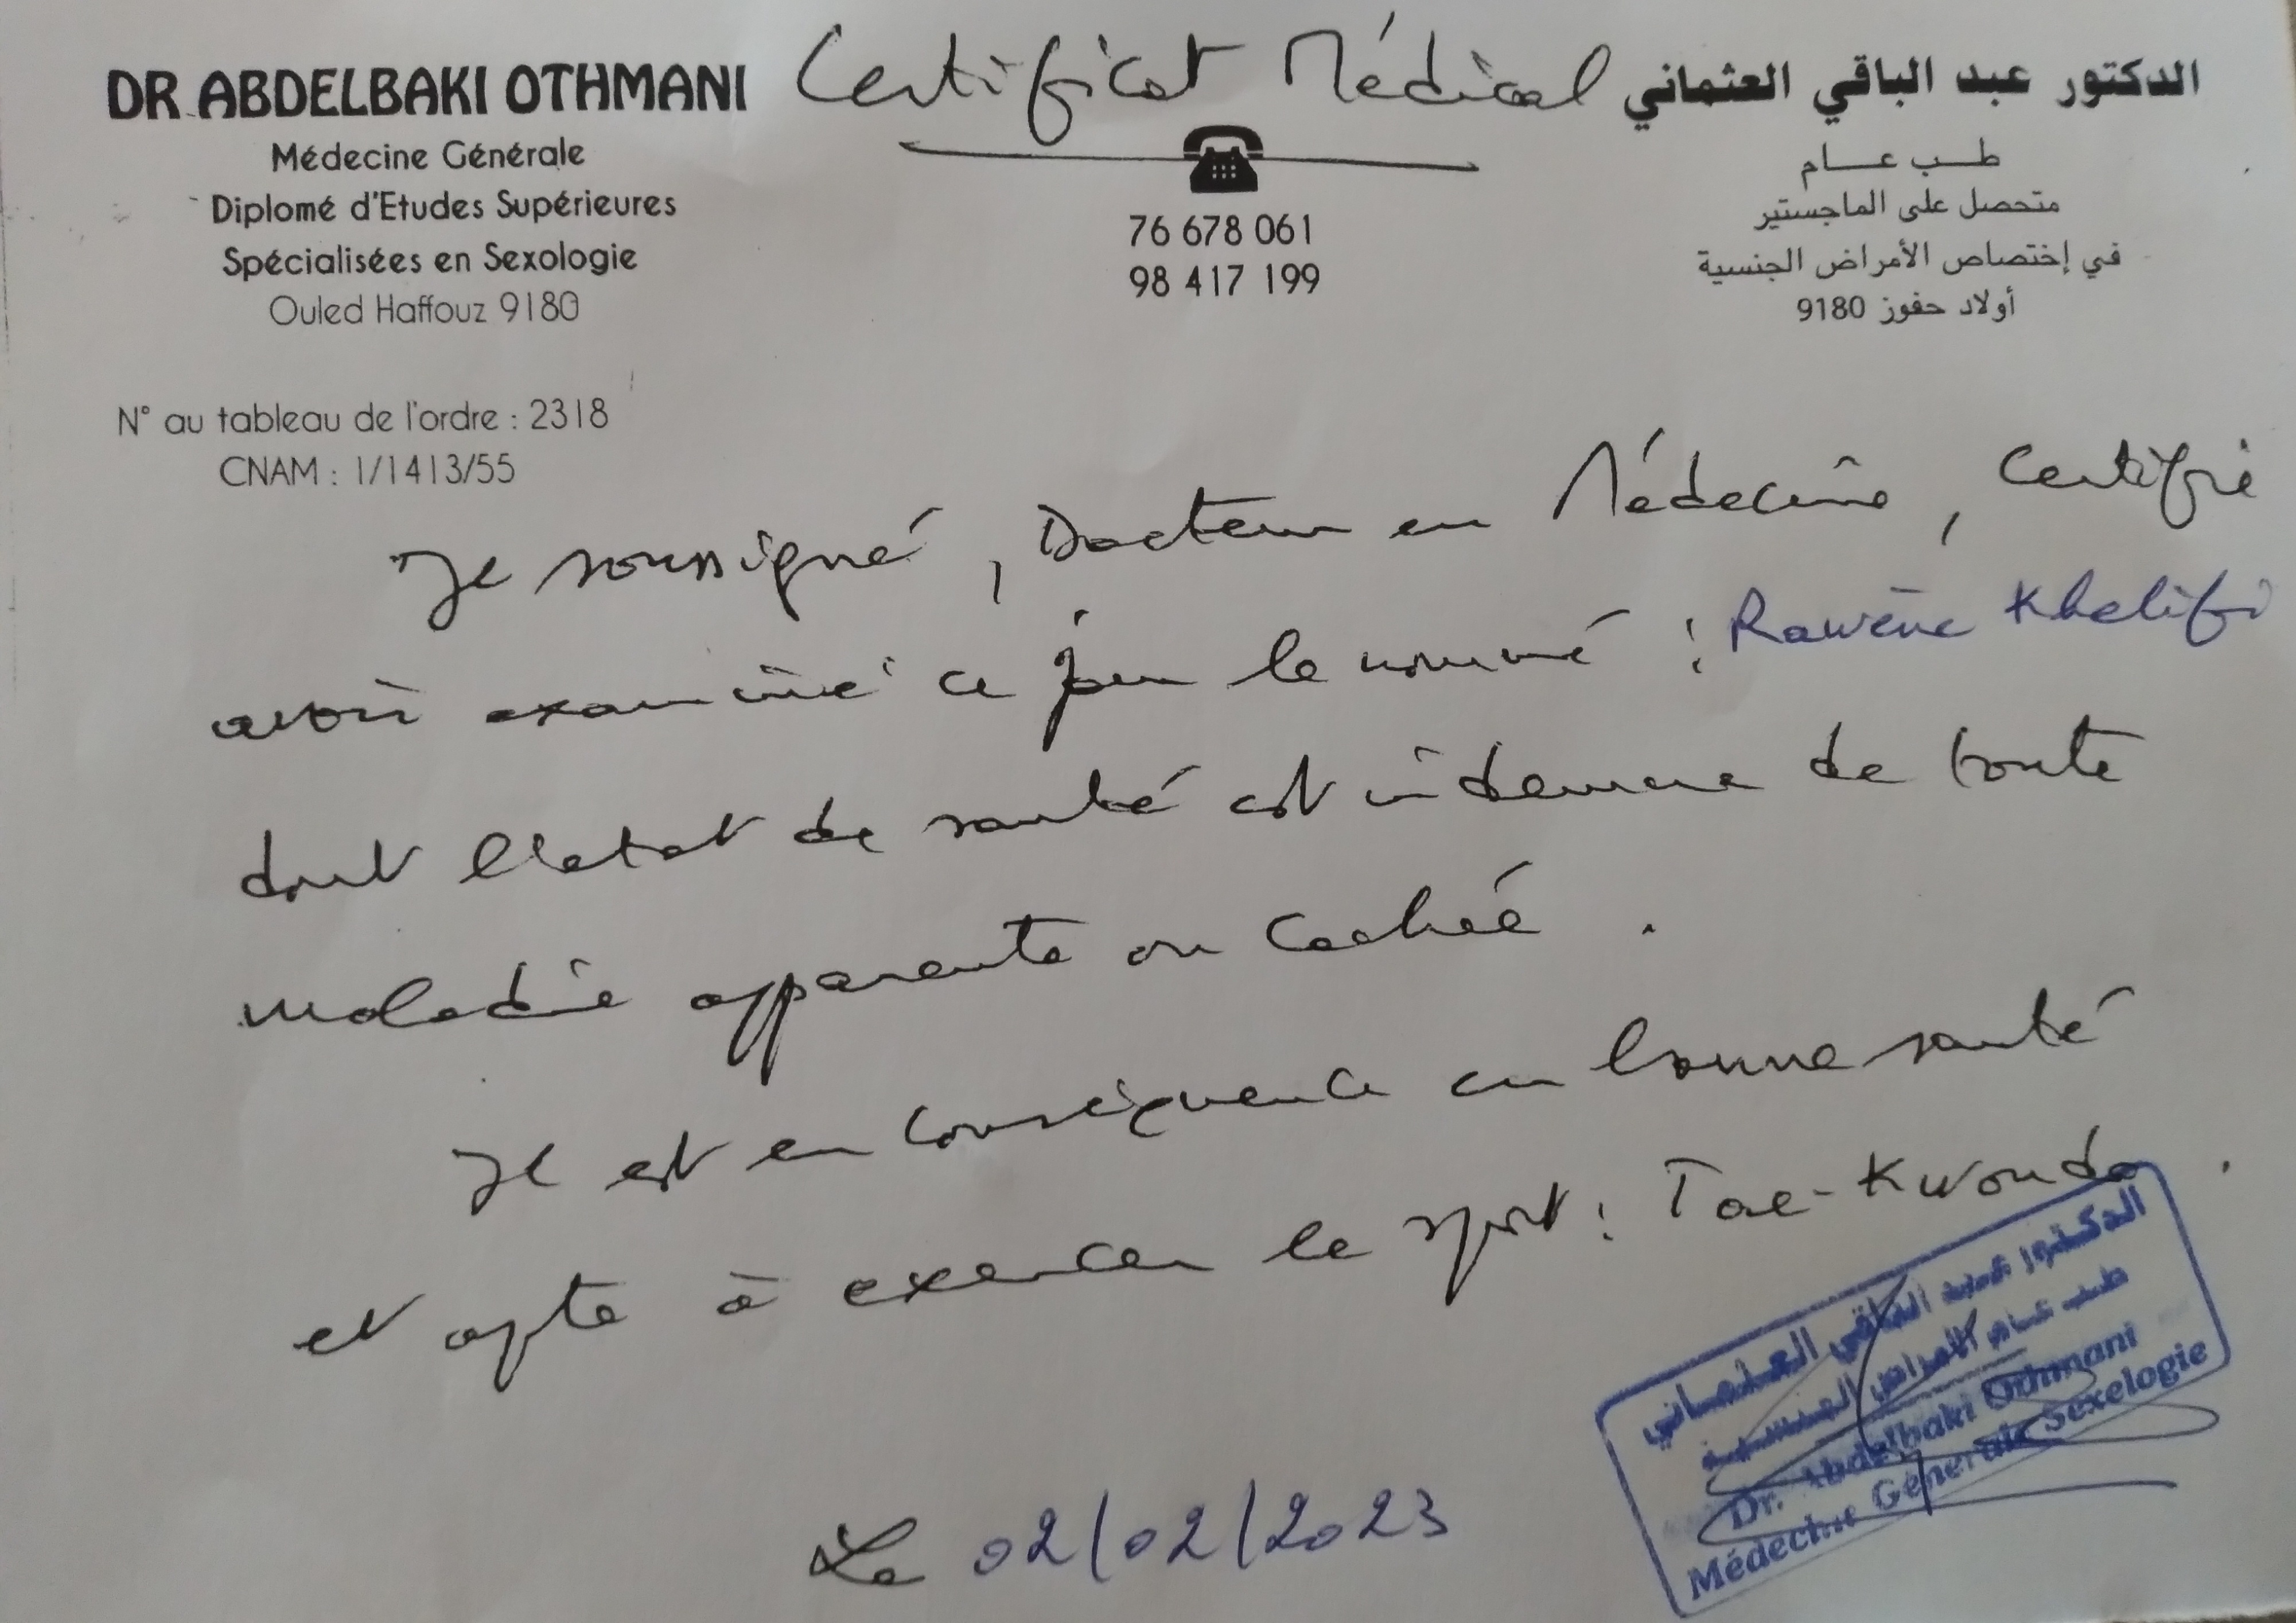 Certificat Médical
DR ABDELBAKI OTHMANI
Médecine Générale
Diplomé d'Etudes Supérieures
Spécialisées en Sexologie
Ouled Haffouz 9180
76 678 061
98 417 199
الدكتور عبد الباقي العثماني
طب عام
متحصل على الماجستير
في إختصاص الأمراض الجنسية
أولاد حفوز 9180
N° au tableau de l'ordre : 2318
CNAM : 1/1413/55
Je soussigné, Docteur en Médecine, certifie
avoir examiné ce jour le nommé : Rawène Khelifi
dont l'etat de santé est indemne de toute
maladie apparente ou cachée .
Il est en conséquence en bonne santé
et apte à exercer le sport : Tae-Kwondo .
الدكتور عبد الباقي العثماني
طب عام الأمراض الجنسية
Dr. Abdelbaki Othmani
Médecine Générale Sexelogie
Le 02/02/2023